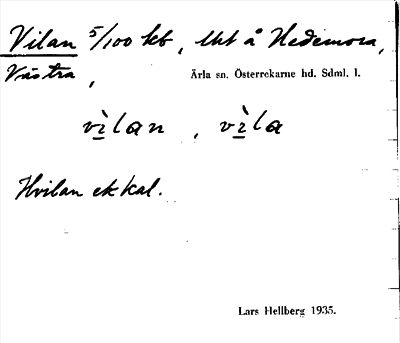 Vilan 5/100 kb, lht å Hedemora,
Västra,
Ärla sn. Österrekarne hd. Sdml. l.
vìlan, vìla
Hvilan ek kal.
Lars Hellberg 1935.